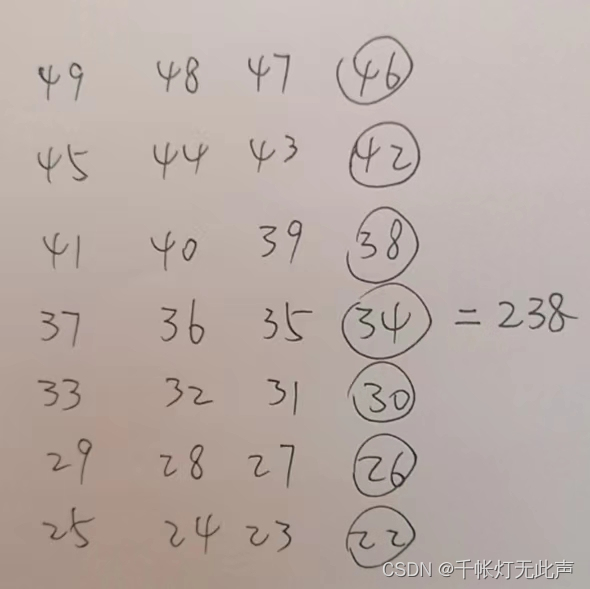 49 48 47 46
45 44 43 42
41 40 39 38
37 36 35 34 = 238
33 32 31 30
29 28 27 26
25 24 23 22
CSDN @千帐灯无此声